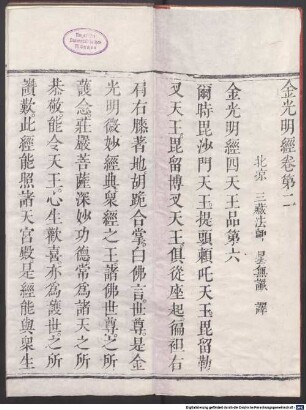 金光明經卷第二
北涼三藏法師曇無讖譯
金光明經四天王品第六
爾時毗沙門天王提頭賴吒天王毘留勒
叉天王毘留博叉天王俱從座起偏袒右
肩右膝著地胡跪合掌白佛言世尊是金
光明微妙經典衆經之王諸佛世尊之所
護念莊嚴菩薩深妙功德常爲諸天之所
恭敬能令天王心生歡喜亦爲護世之所
讚歎此經能照諸天宮殿是經能與衆生